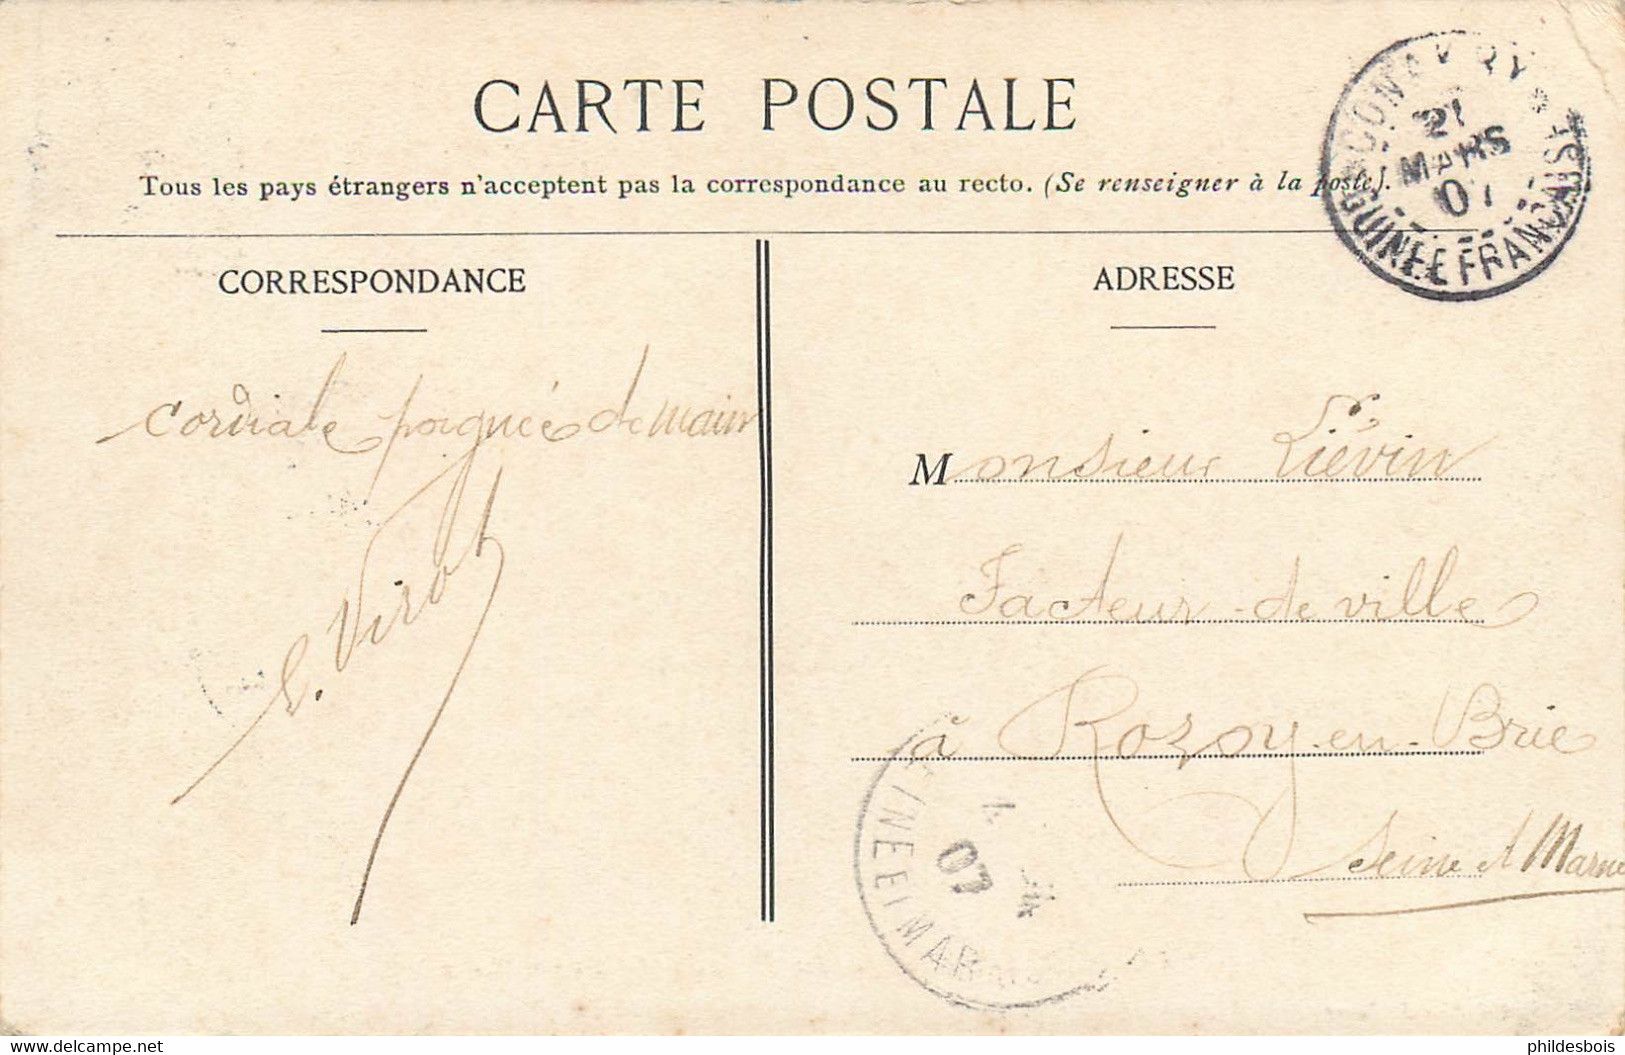 CARTE POSTALE
Tous les pays étrangers n'acceptent pas la correspondance au recto. (Se renseigner à la poste).
CONAKRY
21
MARS
07
GUINÉE FRANÇAISE
CORRESPONDANCE
ADRESSE
cordiale poignée de main
E. Virot
Monsieur Liévin
Facteur de ville
à Rozoy-en-Brie
Seine et Marne
07
INE ET MAR
delcampe.net
phildesbois